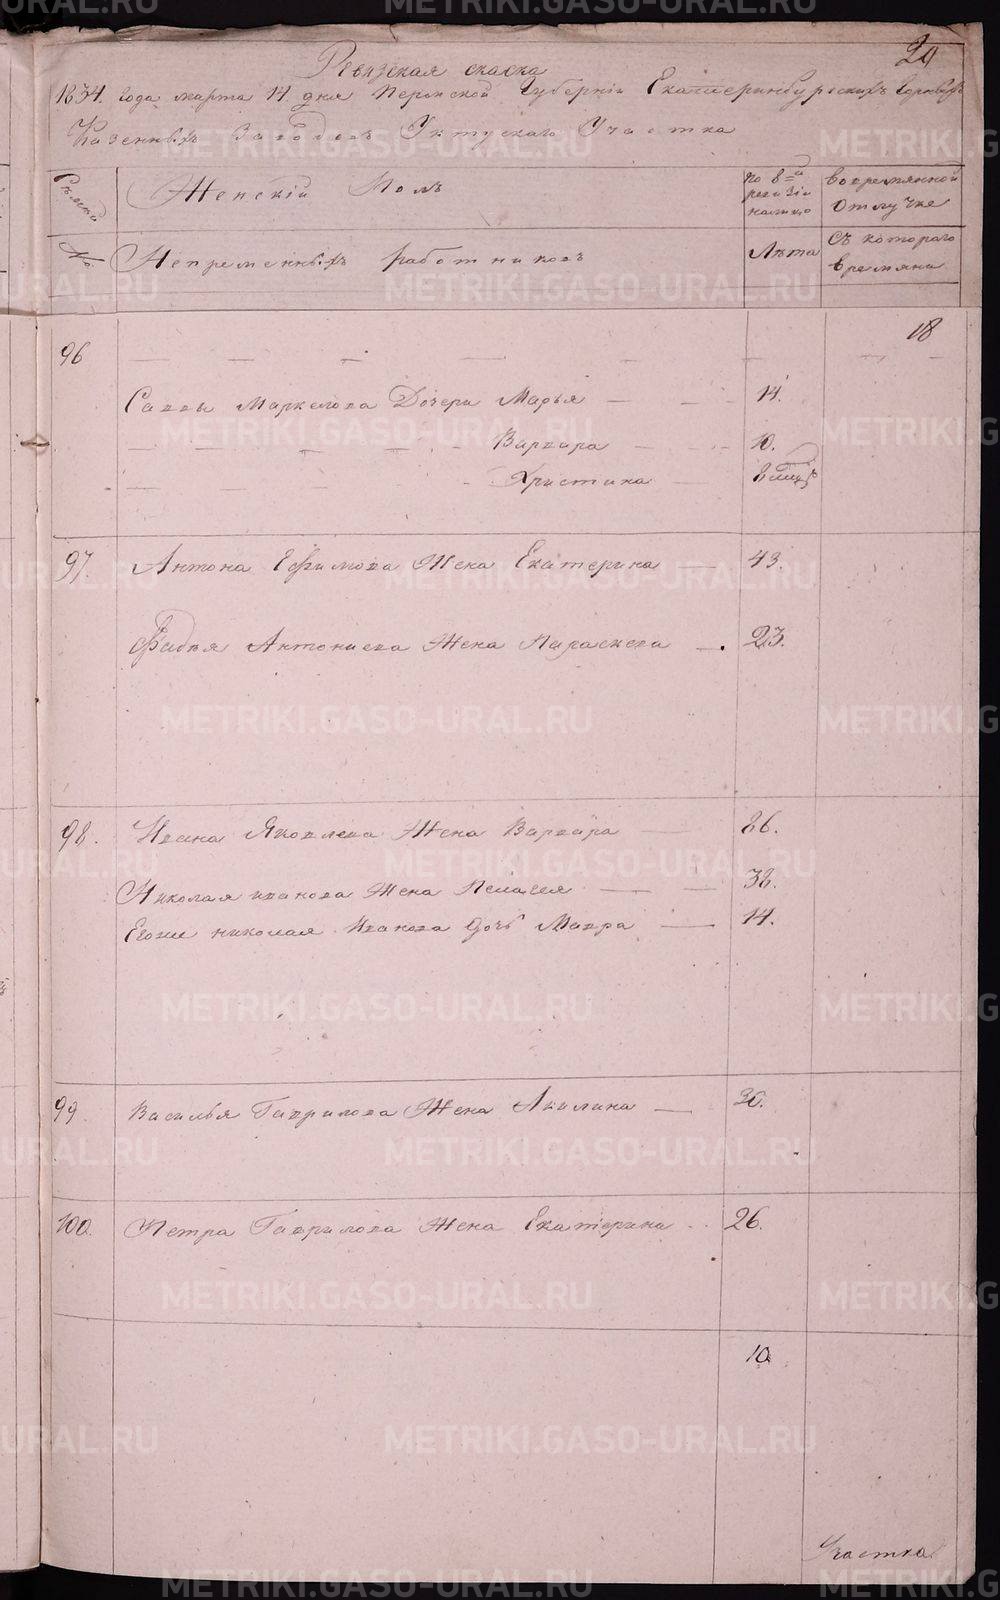 29
Ревизская скаска
1834. года марта 14 дня Пермской Губернiи Екатеринбургскихъ Горныхъ
Казенныхъ Заводовъ Уктускаго Участка
Семей
Женскiй Полъ
по 8й ревизiи налицо
вовремянной отлучке
№
Непременныхъ работниковъ
Лѣта
съ котораго времяни
18
96
Саввы Маркелова Дочери Марья 14.
Варвара 10.
Христина
97. Антона Ефимова Жена Екатерина 43.
Фадея Антониева Жена Параскева 23.
98. Ивана Яковлева Жена Варвара 86.
Николая иванова Жена Пелагея 38.
Егоже николая Иванова дочь Мавра 14.
99. Василья Гаврилова Жена Акилина 30.
100. Петра Гаврилова Жена Екатерина 26.
10
Участка
METRIKI.GASO-URAL.RU